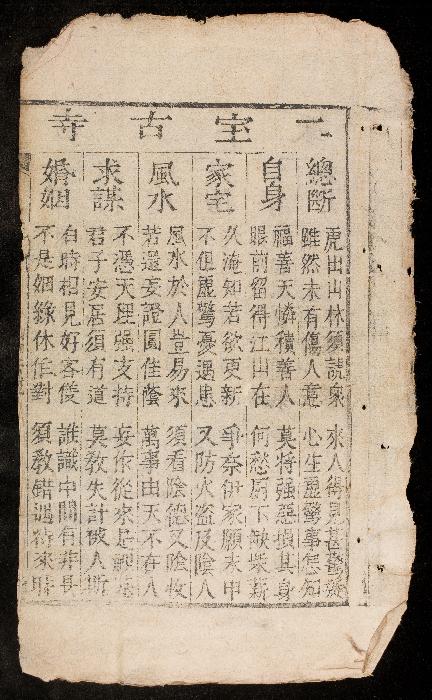 二宝古寺
總斷
虎出山林須諕衆 來人得見甚驚疑
雖然未有傷人意 心生虛驚事怎知
自身
福善天憐積善人 莫將强惡損其身
眼前留得江山在 何愁厨下缺柴薪
家宅
久淹知若欲更新 爭奈伊家願未申
不但虛驚憂遇患 又防火盜及陰人
風水
風水於人豈易來 須看陰德又陰
若還妄證圖佳蔭 萬事由天不在人
求謀
不憑天理强支持 妄作從來是
君子安居須有道 莫教失計被人
婚姻
有時相見好客儀 誰識中間有
不是姻緣休作對 須教錯過待來時